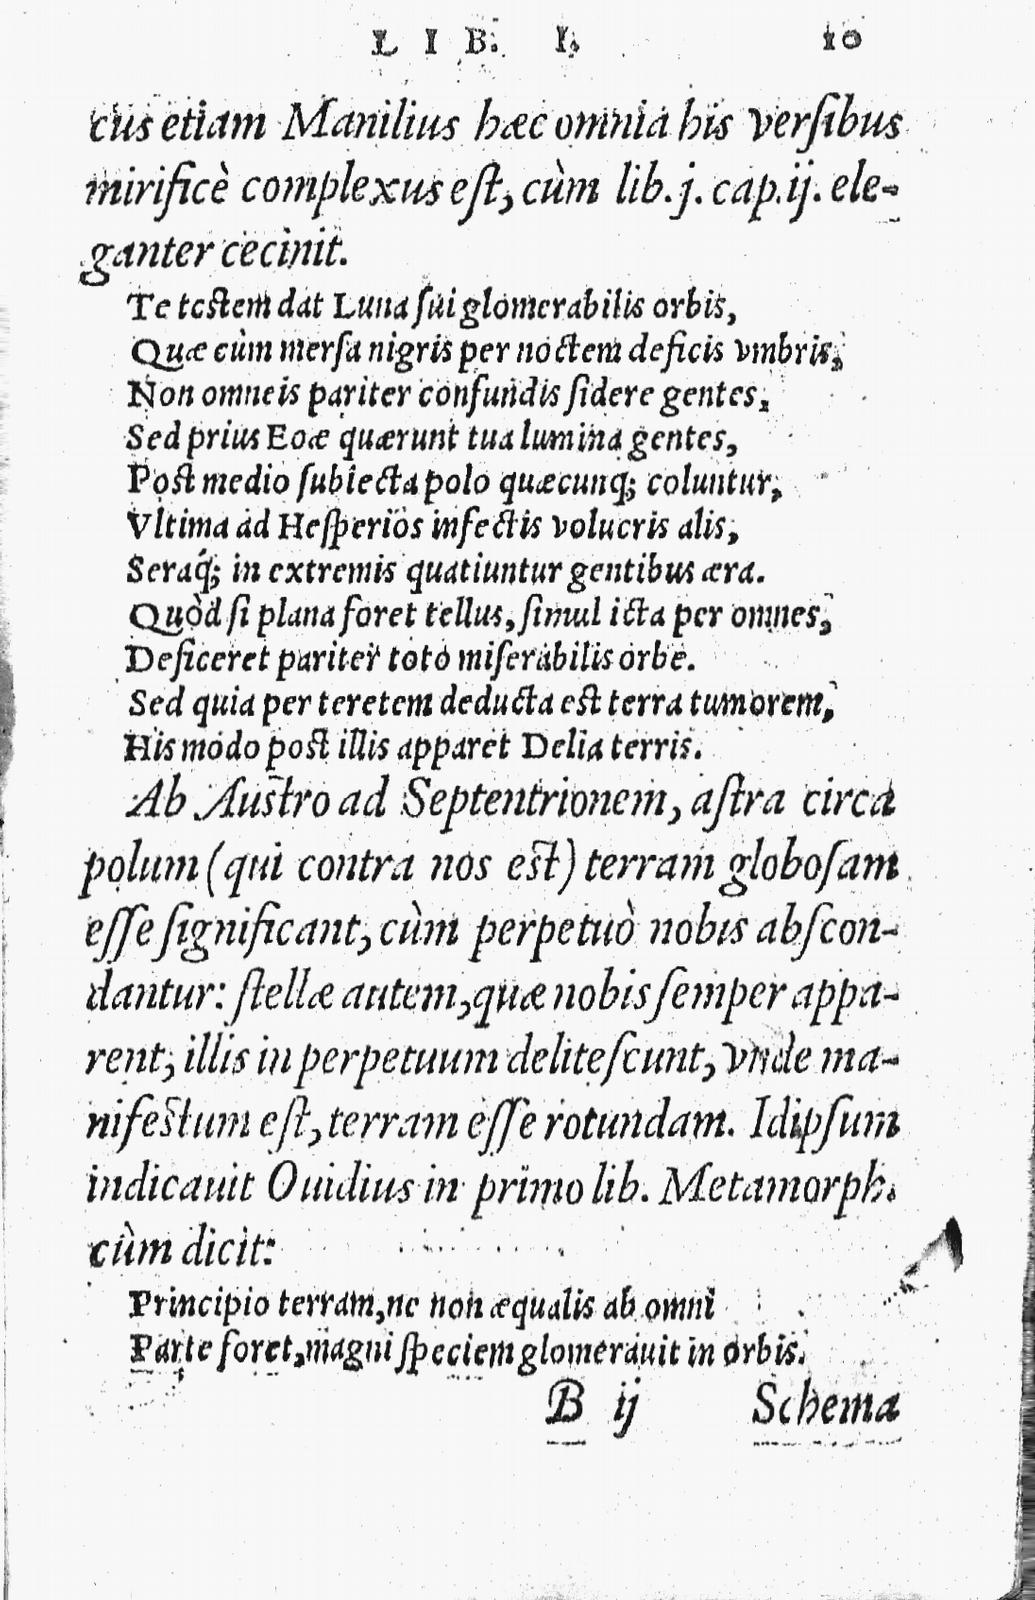 LIB. I. 10
cus etiam Manilius hæc omnia his verſibus
mirificè complexus eſt, cùm lib. j. cap. ij. ele-
ganter cecinit.
Te teſtem dat Luna ſui glomerabilis orbis,
Quæ cùm merſa nigris per noctem deficis vmbris,
Non omneis pariter confundis ſidere gentes,
Sed prius Eoæ quærunt tua lumina gentes,
Poſt medio ſubiecta polo quæcunq; coluntur,
Vltima ad Heſperios infectis volucris alis,
Seraq́; in extremis quatiuntur gentibus æra.
Quòd ſi plana foret tellus, ſimul icta per omnes,
Deficeret pariter toto miſerabilis orbe.
Sed quia per teretem deducta eſt terra tumorem,
His modo poſt illis apparet Delia terris.
Ab Auſtro ad Septentrionem, aſtra circa
polum (qui contra nos eſt) terram globoſam
eſſe ſignificant, cùm perpetuò nobis abſcon-
dantur: ſtellæ autem, quæ nobis ſemper appa-
rent, illis in perpetuum deliteſcunt, vnde ma-
nifeſtum eſt, terram eſſe rotundam. Idipſum
indicauit Ouidius in primo lib. Metamorph.
cùm dicit:
Principio terram, ne non æqualis ab omni
Parte foret, magni ſpeciem glomerauit in orbis.
B ij Schema